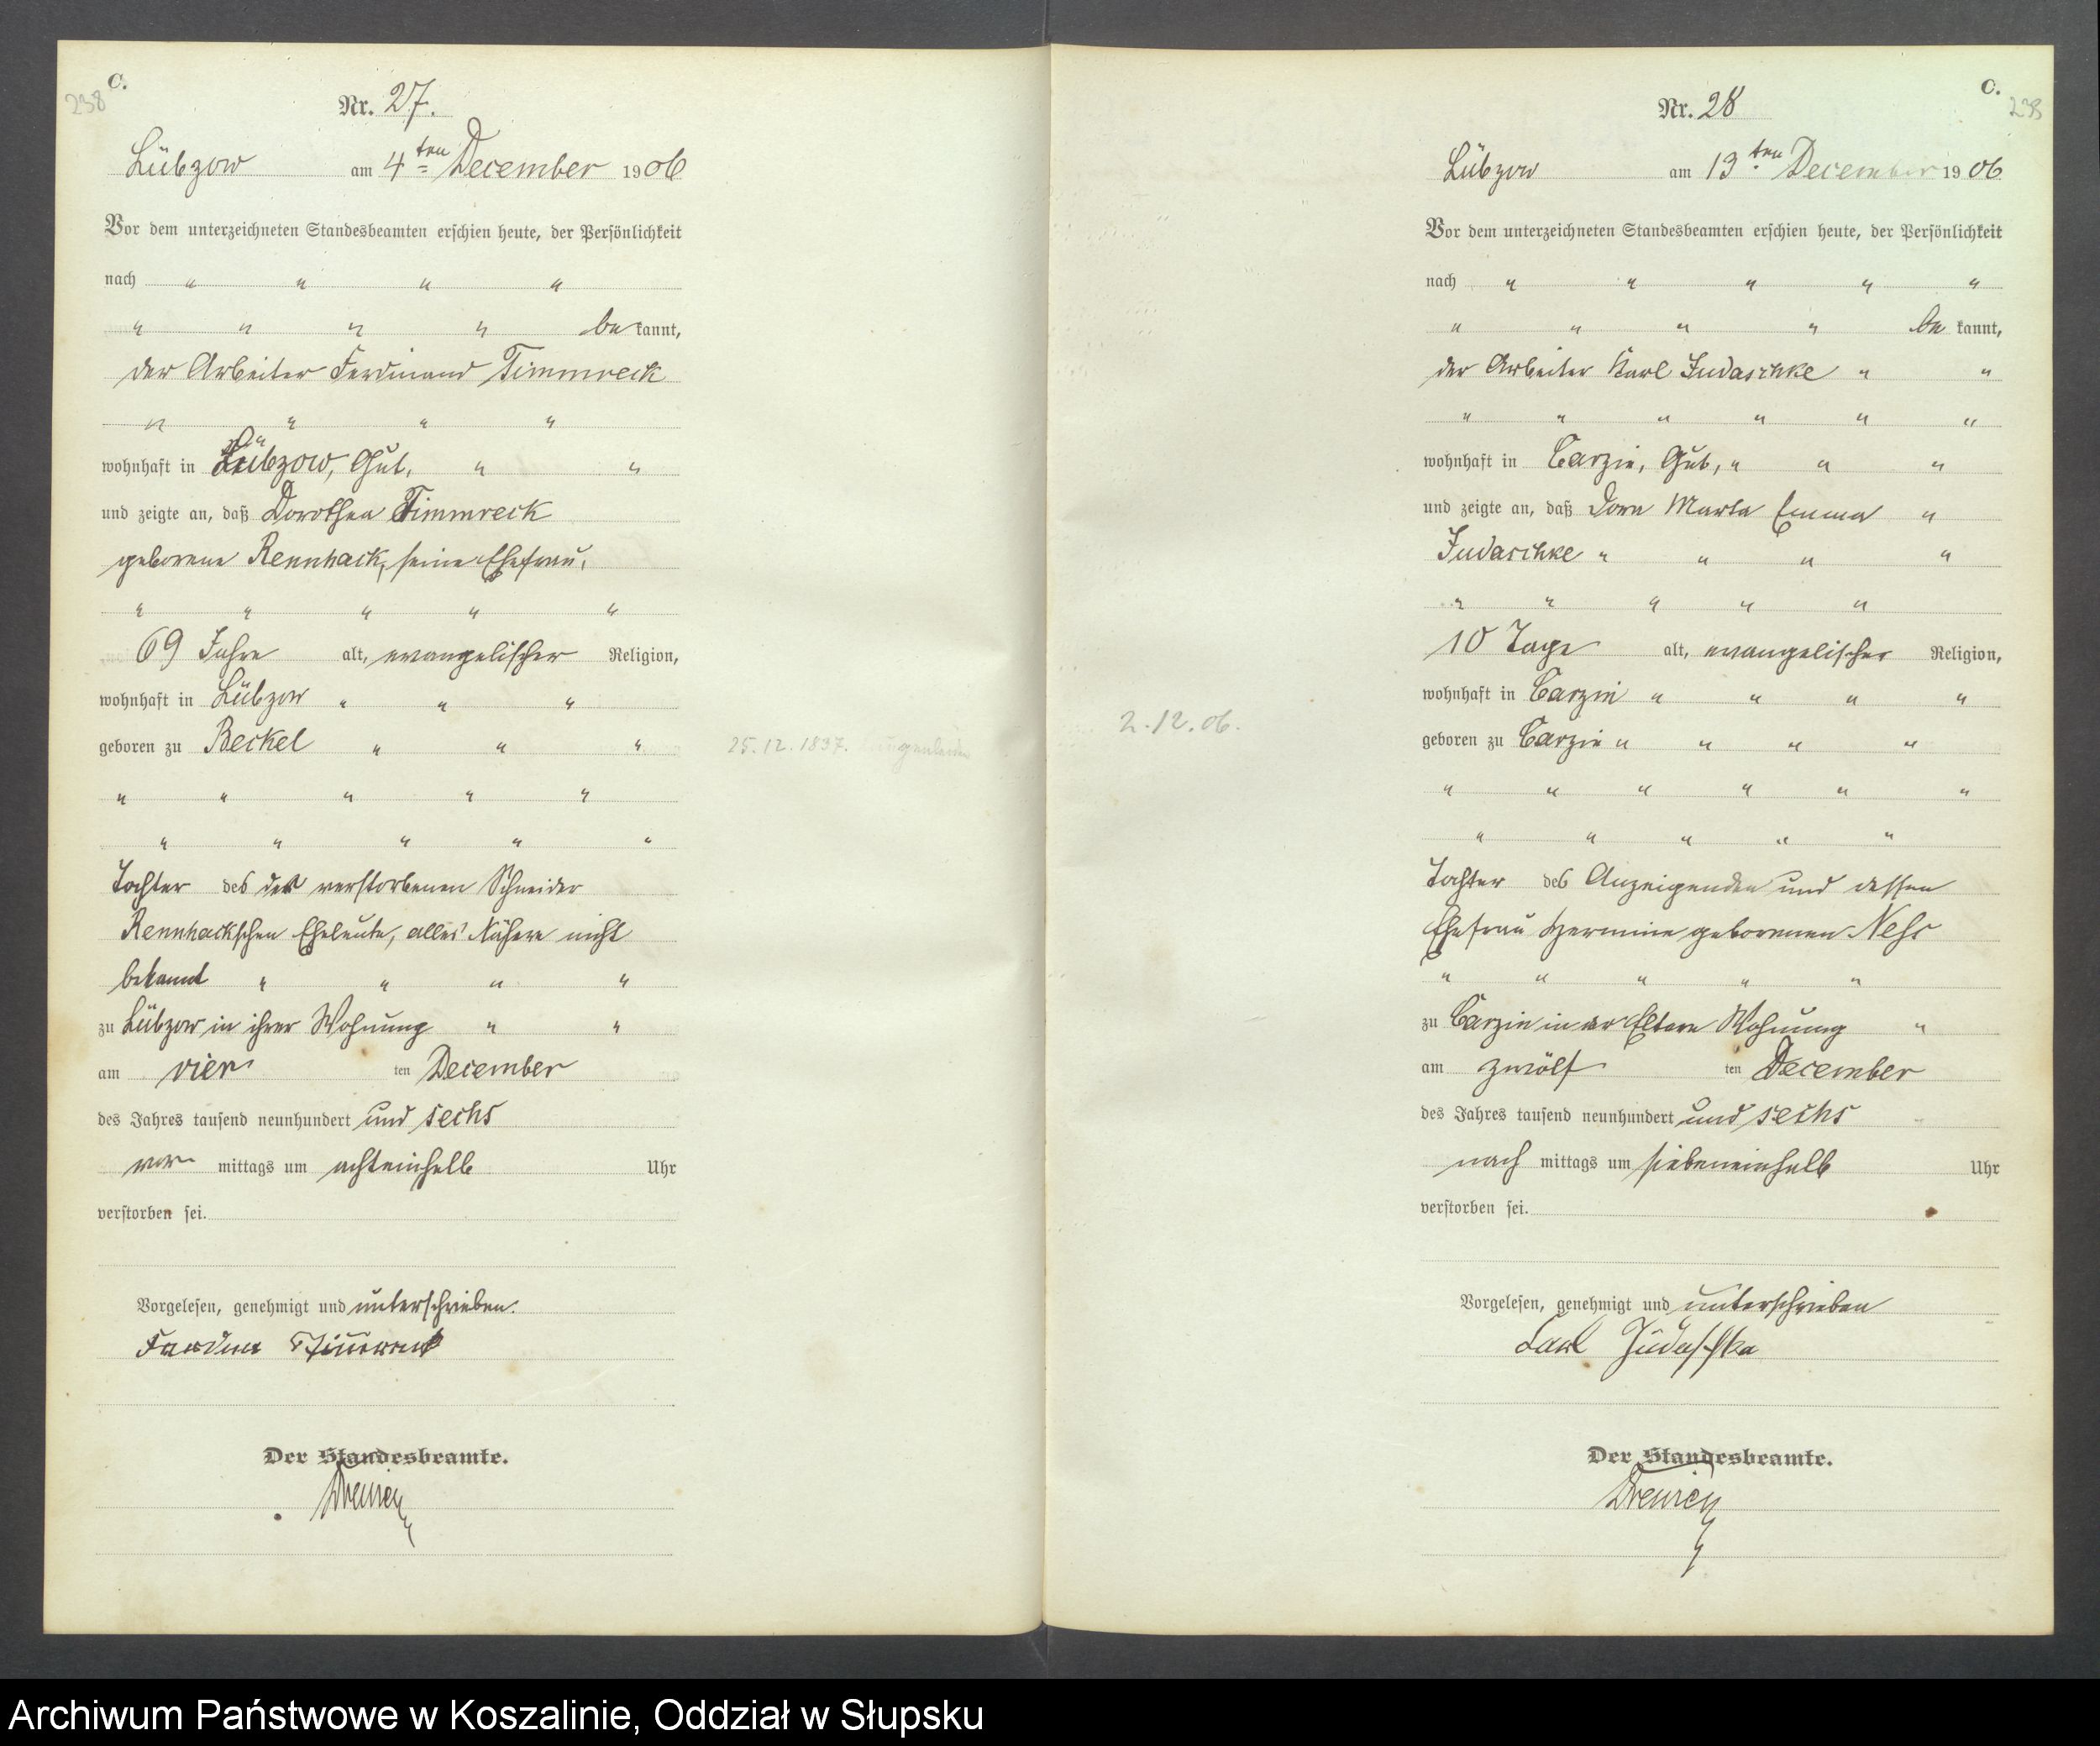 C.
238
Nr. 27.
Lübzow am 4ten December 1906
Vor dem unterzeichneten Standesbeamten erschien heute, der Persönlichkeit
nach " " " "
" " " " be kannt,
der Arbeiter Ferdinand Timmreck
" " " "
wohnhaft in Lübzow, Gut, " "
und zeigte an, daß Dorothea Timmreck
geborene Rennhack, seine Ehefrau,
" " " " "
69 Jahre alt, evangelischer Religion,
wohnhaft in Lübzow " " "
geboren zu Beckel " " "
25.12.1837.
" " " " "
" " " " "
Tochter des der verstorbenen Schneider
Rennhackschen Eheleute, alles Nähere nicht
bekannt " " " "
zu Lübzow in ihrer Wohnung " "
am vier ten December
des Jahres tausend neunhundert und sechs
vor mittags um achteinhalb Uhr
verstorben sei.
Vorgelesen, genehmigt und unterschrieben.
Der Standesbeamte.
C.
238
Nr. 28
Lübzow am 13ten December 1906
Vor dem unterzeichneten Standesbeamten erschien heute, der Persönlichkeit
nach " " " " "
" " " " be kannt,
der Arbeiter Karl Judaschke " "
" " " " " "
wohnhaft in Carzin, Gut, " " "
und zeigte an, daß Dora Marta Emma "
Judaschke " " " "
" " " " "
10 Tage alt, evangelischer Religion,
wohnhaft in Carzin " " " "
2.12.06.
geboren zu Carzin " " " "
" " " " " "
" " " " "
Tochter des Anzeigenden und dessen
Ehefrau Hermine geborenen Nehs
" " " " "
zu Carzin in der Eltern Wohnung "
am zwölf ten December
des Jahres tausend neunhundert und sechs
nach mittags um siebeneinhalb Uhr
verstorben sei.
Vorgelesen, genehmigt und unterschrieben
Carl Judaschke
Der Standesbeamte.
Archiwum Państwowe w Koszalinie, Oddział w Słupsku